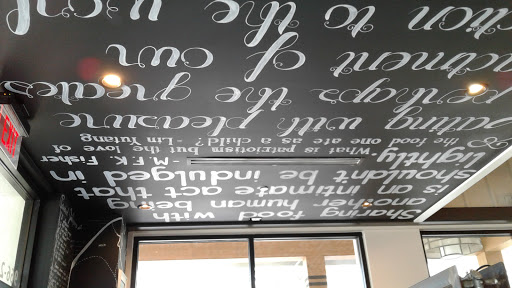 Sharing food with
another human being
is an intimate act that
shouldn't be indulged in
lightly - M.F.K. Fisher
What is patriotism but the love of
the food one ate as a child? -Lin Yutang
ating with pleasure
perhaps the greates
ctment of own
ction to the